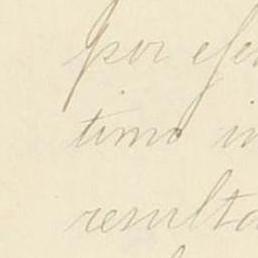 por efe
timo i
resulta